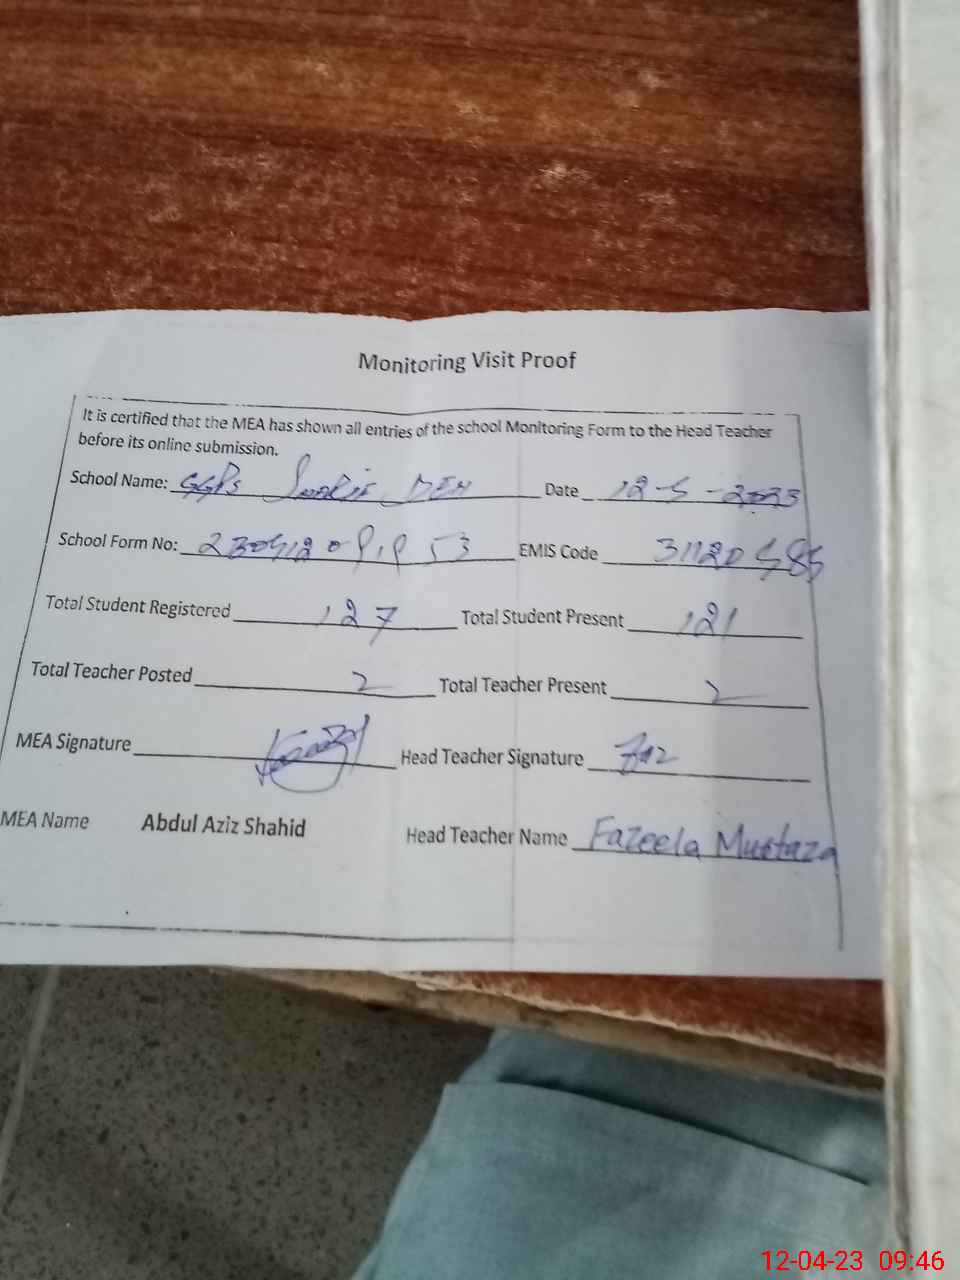 Monitoring Visit Proof
It is certified that the MEA has shown all entries of the school Monitoring Form to the Head Teacher
before its online submission.
School Name: GGPS DEH Date 12-5-2023
School Form No: EMIS Code 31120585
Total Student Registered 127 Total Student Present 121
Total Teacher Posted 2 Total Teacher Present 2
MEA Signature Head Teacher Signature
MEA Name Abdul Aziz Shahid Head Teacher Name Fazeela Murtaza
12-04-23 09:46